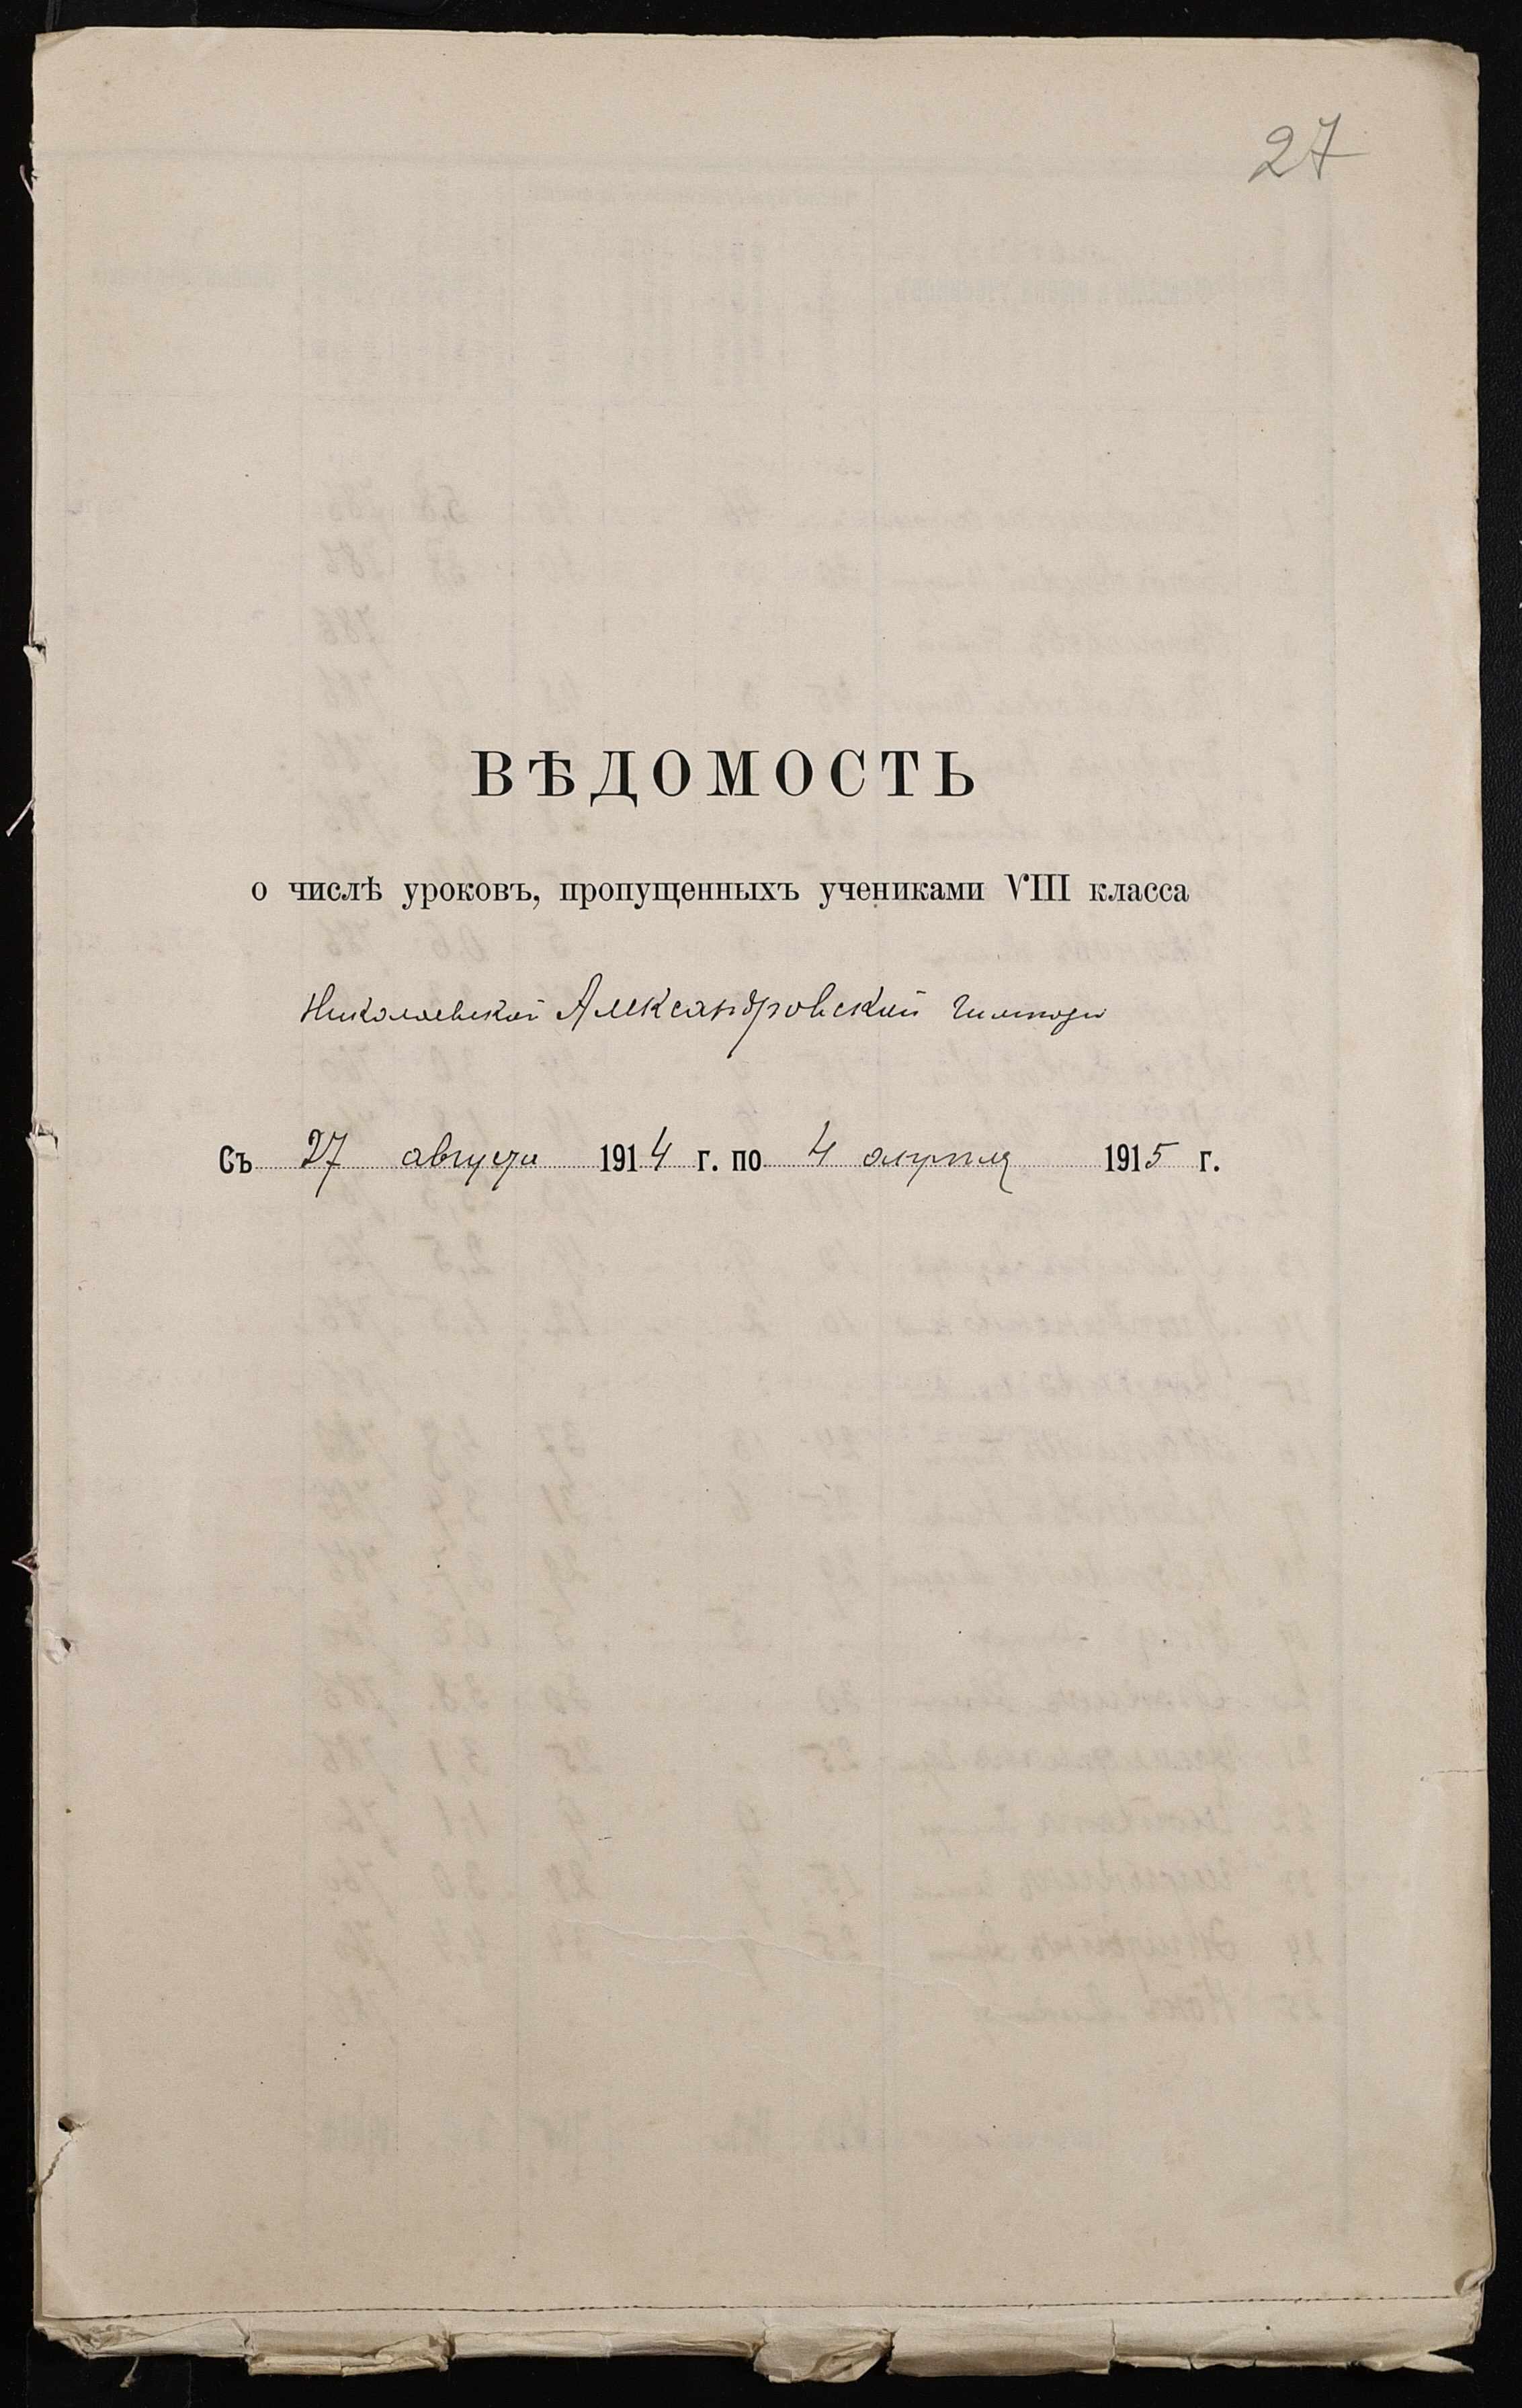 27
ВѢДОМОСТЬ
о числѣ уроковъ, пропущенныхъ учениками VIII класса
Николаевской Александровской
Съ 27 августа 1914 г. по 4 апрѣля 1915 г.